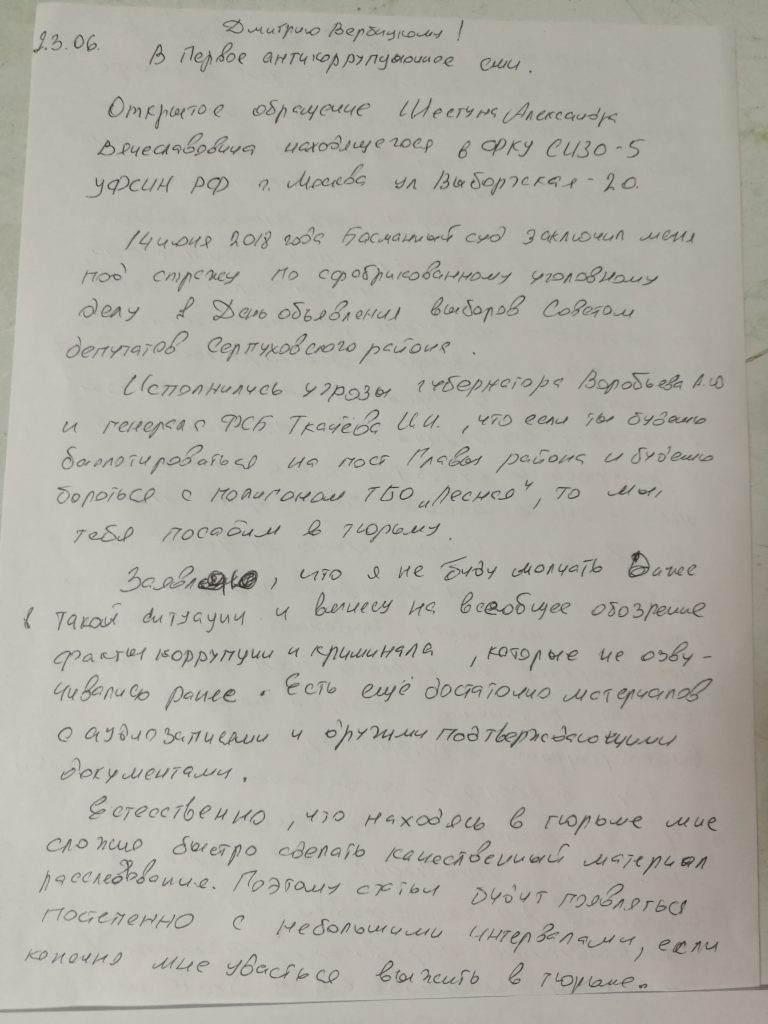 Дмитрию Вербицкому!
23.06.
В Первое антикоррупционное сми.
Открытое обращение Шестуна Александра
Вячеславовича находящегося в ФКУ СИЗО-5
УФСИН РФ г. Москва ул Выборжская-20.
14 июня 2018 года Басманный суд заключил меня
под стражу по сфабрикованному уголовному
делу в День объявления выборов Советом
депутатов Серпуховского района.
Исполнились угрозы губернатора Воробьева А.Ю
и генерала ФСБ Ткачёва И.И., что если ты будешь
баллотироваться на пост Главы района и будешь
бороться с полигоном ТБО „Лесная“, то мы,
тебя посадим в тюрьму.
Заявляю, что я не буду молчать Даже
в такой ситуации и вынесу на всеобщее обозрение
факты коррупции и криминала, которые не озву-
чивались ранее. Есть ещё достаточно материалов
с аудиозаписями и другими подтверждающими
документами.
Естесственно, что находясь в тюрьме мне
сложно быстро сделать качественный материал
расследования. Поэтому статьи будут появляться
постепенно с небольшими интервалами, если
конечно мне удасться выжить в тюрьме.